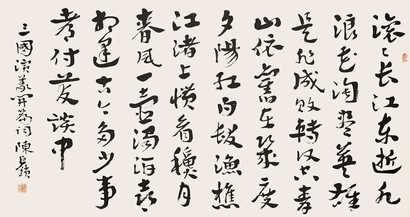 滚滚长江东逝水
浪花淘尽英雄
是非成败转头空青
山依舊在几度
夕陽红白髮漁樵
江渚上惯看秋月
春風一壶濁酒喜
相逢古今多少事
都付笑談中
三國演義開篇詞 陳